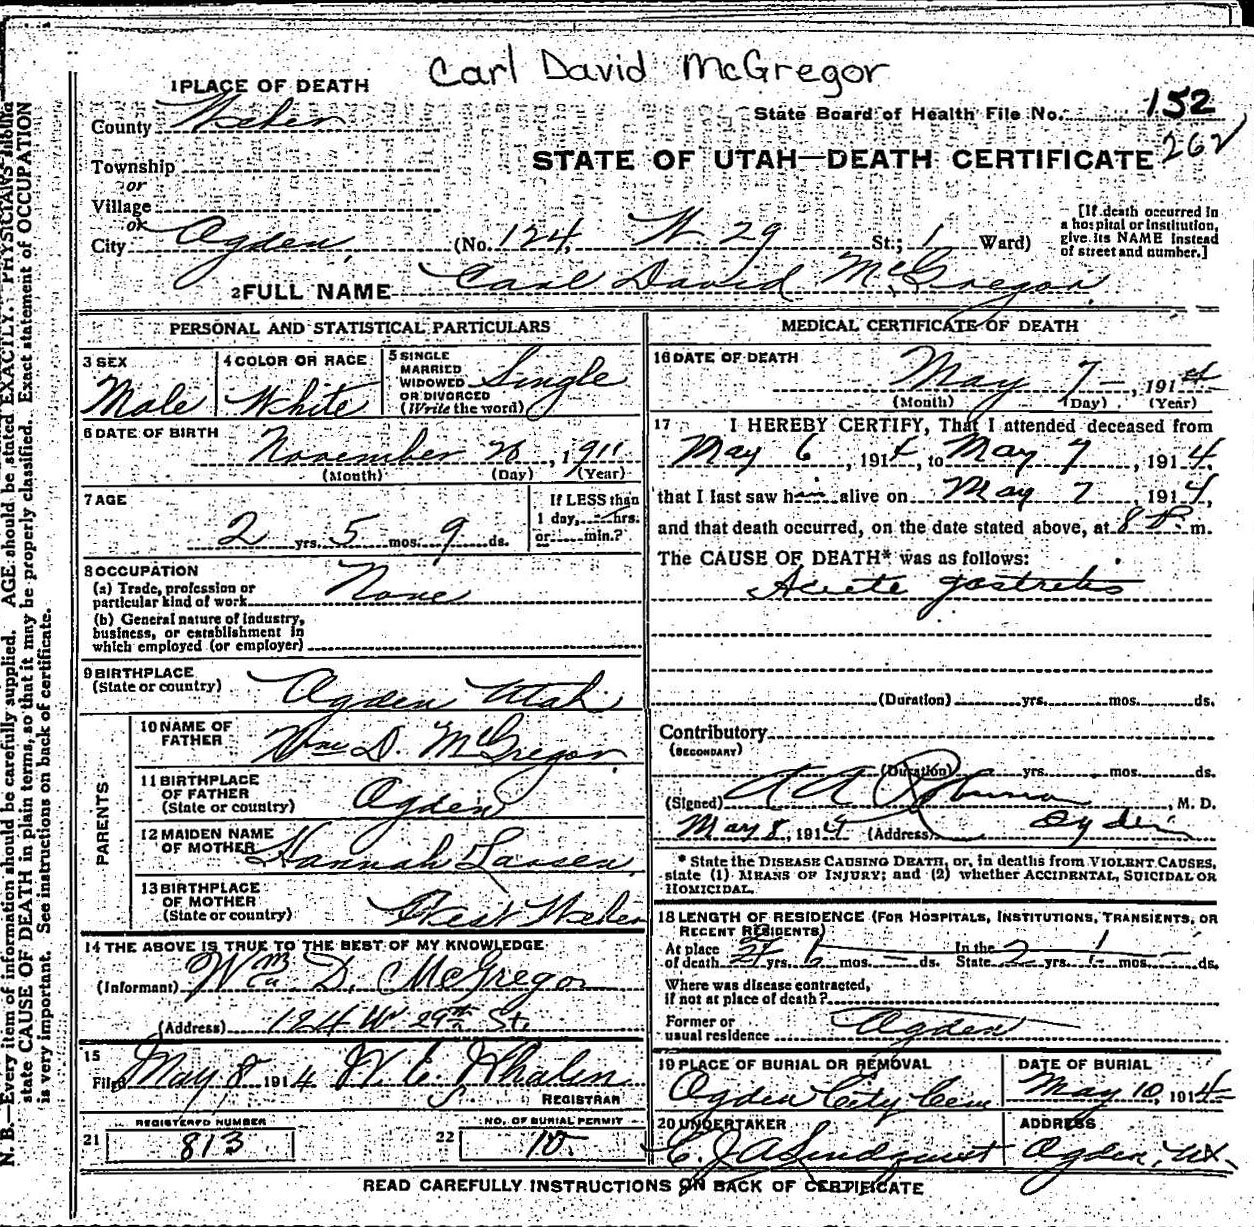 Carl David McGregor
1 PLACE OF DEATH
State Board of Health File No. 152
262
County Weber
STATE OF UTAH—DEATH CERTIFICATE
Township
or
Village
or
City Ogden, (No. 124, W. 29 St.; 1 Ward)
[If death occurred in
a hospital or institution,
give its NAME instead
of street and number.]
2 FULL NAME Carl David McGregor.
PERSONAL AND STATISTICAL PARTICULARS
3 SEX
Male
4 COLOR OR RACE
White
5 SINGLE
MARRIED
WIDOWED
OR DIVORCED
(Write the word)
Single
6 DATE OF BIRTH
November 28, 1911
(Month) (Day) (Year)
7 AGE
2 yrs. 5 mos. 9 ds.
If LESS than
1 day, hrs.
or min.?
8 OCCUPATION
(a) Trade, profession or
particular kind of work None
(b) General nature of industry,
business, or establishment in
which employed (or employer)
9 BIRTHPLACE
(State or country) Ogden Utah
PARENTS
10 NAME OF
FATHER Wm D. McGregor
11 BIRTHPLACE
OF FATHER
(State or country) Ogden
12 MAIDEN NAME
OF MOTHER Hannah Larsen,
13 BIRTHPLACE
OF MOTHER
(State or country) West Weber
14 THE ABOVE IS TRUE TO THE BEST OF MY KNOWLEDGE
(Informant) Wm D. McGregor
(Address) 124 W 29th St.
15
Filed May 8 1914 W. E. Whalen
REGISTRAR
REGISTERED NUMBER
21 813
NO. OF BURIAL PERMIT
22 10
MEDICAL CERTIFICATE OF DEATH
16 DATE OF DEATH
May 7 , 1914
(Month) (Day) (Year)
17 I HEREBY CERTIFY, That I attended deceased from
May 6 , 1914, to May 7 , 1914.
that I last saw him alive on May 7 , 1914,
and that death occurred, on the date stated above, at 8 P. m.
The CAUSE OF DEATH* was as follows:
Acute gastretis
(Duration) yrs. mos. ds.
Contributory
(SECONDARY)
(Duration) yrs. mos. ds.
(Signed) , M. D.
May 8, 1914 (Address) Ogden
* State the DISEASE CAUSING DEATH, or, in deaths from VIOLENT CAUSES,
state (1) MEANS OF INJURY; and (2) whether ACCIDENTAL, SUICIDAL OR
HOMICIDAL.
18 LENGTH OF RESIDENCE (FOR HOSPITALS, INSTITUTIONS, TRANSIENTS, OR
RECENT RESIDENTS)
At place In the
of death yrs. mos. ds. State 2 yrs. mos. ds.
Where was disease contracted,
if not at place of death?
Former or
usual residence Ogden
19 PLACE OF BURIAL OR REMOVAL
Ogden City Cem
DATE OF BURIAL
May 10, 1914
20 UNDERTAKER
C. J. A Lindquist
ADDRESS
Ogden, Ut.
READ CAREFULLY INSTRUCTIONS ON BACK OF CERTIFICATE
N. B.—Every item of information should be carefully supplied. AGE should be stated EXACTLY. PHYSICIANS should
state CAUSE OF DEATH in plain terms, so that it may be properly classified. Exact statement of OCCUPATION
is very important. See instructions on back of certificate.